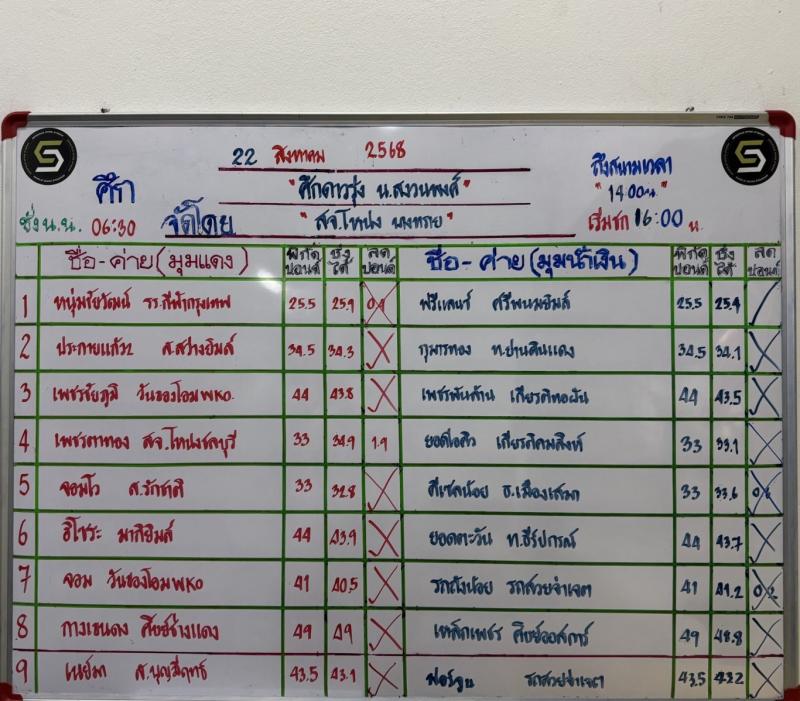 22 สิงหาคม 2568
ศึก "ศึกดาวรุ่ง น.สงวนพงศ์" ถึงสนามเวลา "14.00น."
ชั่งน.น. 06:30 จัดโดย "สจ.โทน่ง บางทราย" เริ่มชก 16:00 น.
ชื่อ-ค่าย(มุมแดง) พิกัดปอนด์ ชั่งได้ ลดปอนด์ ชื่อ-ค่าย(มุมน้ำเงิน) พิกัดปอนด์ ชั่งได้ ลดปอนด์
1 หนุ่มชัยวัฒน์ รร.กีฬากรุงเทพ 25.5 25.9 0.4 ฟรีแลนท์ ศรีพนมยิมส์ 25.5 25.4
2 ประกายแก้ว ส.สว่างยิมส์ 34.5 34.3 กุมารทอง 34.5 34.1
3 เพชรชัยภูมิ วันของโอมWKO. 44 43.8 เพชรพันล้าน เกียรติทอฝัน 44 43.5
4 เพชรตาทอง สจ.โทน่งชลบุรี 33 34.9 1.9 ยอดไอคิว เกียรติคมสิงห์ 33 33.1
5 จอมโว ส.รักชาติ 33 32.8 ดีเซลน้อย ธ.เมืองเสมา 33 33.6
6 ฮิโชระ มากิยิมส์ 44 43.9 ยอดตะวัน ท.ธีร์ปกรณ์ 44 43.7
7 จอม วันของโอมWKO 41 40.5 รถถังน้อย รถสวยจำเจต 41 41.2 0.2
8 กางเขนดง ศิษย์ช้างแดง 49 49 เหล็กเพชร ศิษย์ออสการ์ 49 48.8
9 เนย์มา ส.บุญมีฤทธิ์ 43.5 43.1 ฟอร์จูน รถสวยจำเจต 43.5 42.2